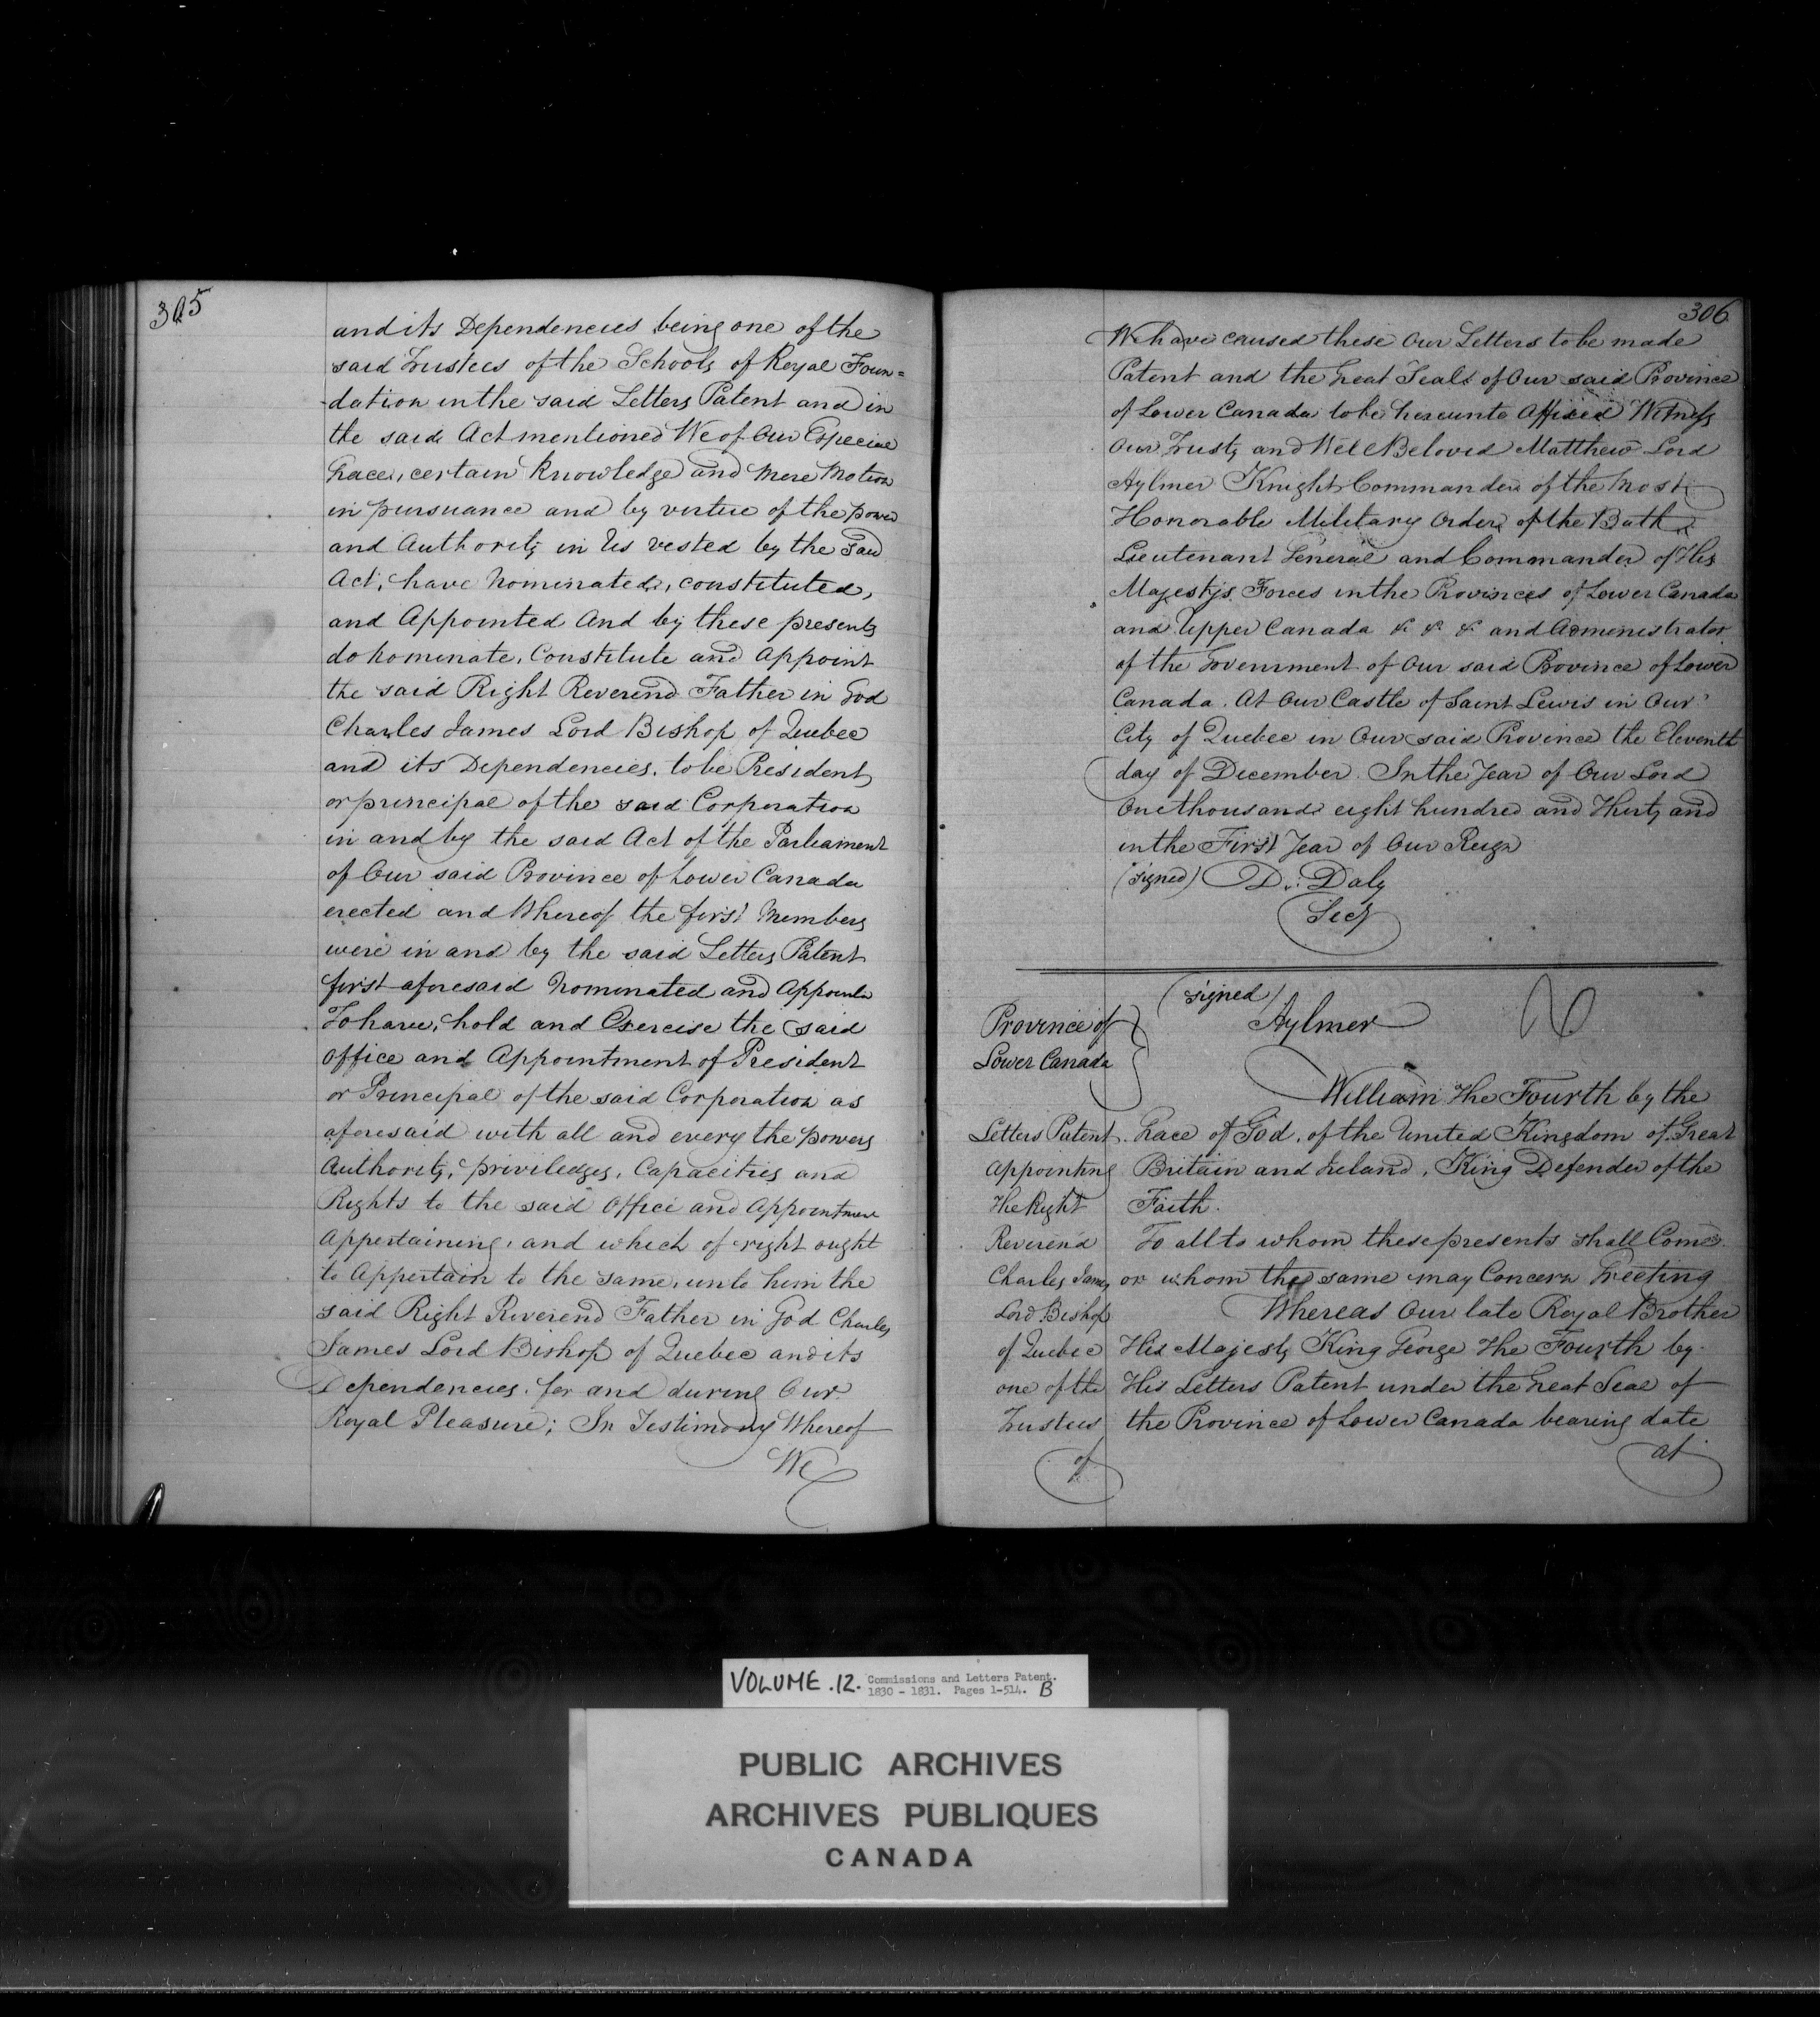 305
and its Dependencies being one of the
said Trustees of the Schools of Royal Foun=
-dation in the said Letters Patent and in
the said Act mentioned We of Our Especial
Grace, certain Knowledge and Mere Motion
in pursuance and by virtue of the power
and Authority in Us vested by the said
Act, have Nominated, constituted,
and Appointed And by these presents
do Nominate, Constitute and Appoint
the said Right Reverend Father in God
Charles James Lord Bishop of Quebec
and its Dependencies, to be President
or principal of the said Corporation
in and by the said Act of the Parliament
of Our said Province of Lower Canada
erected and Whereof the first Members
were in and by the said Letters Patent
first aforesaid Nominated and Appointed
To have, hold and Exercise the said
Office and Appointment of President
or Principal of the said Corporation as
aforesaid with all and every the powers
Authority, priviledges, Capacities and
Rights to the said Office and Appointment
Appertaining, and which of right ought
to Appertain to the same, unto him the
said Right Reverend Father in God Charles
James Lord Bishop of Quebec and its
Dependencies, for and during Our
Royal Pleasure; In Testimony Whereof
We
306
We have caused these Our Letters to be made
Patent and the Great Seal of Our said Province
of Lower Canada to be hereunto Affixed Witness
Our Trusty and Well Beloved Matthew Lord
Aylmer Knight Commander of the Most
Honorable Military Order of the Bath
Lieutenant General and Commander of His
Majesty's Forces in the Provinces of Lower Canada
and Upper Canada &. &. &. and Administrator
of the Government of Our said Province of Lower
Canada. At Our Castle of Saint Lewis in Our
City of Quebec in Our said Province the Eleventh
day of December. In the Year of Our Lord
One thousand eight hundred and Thirty and
in the First Year of Our Reign
(signed) D. Daly
Secy
(signed)
Province of Aylmer
Lower Canada
William The Fourth by the
Letters Patent Grace of God, of the United Kingdom of Great
Appointing Britain and Ireland, King Defender of the
The Right Faith.
Reverend To all to whom these presents shall Come
Charles James or whom the same may Concern Greeting
Lord Bishop Whereas Our late Royal Brother
of Quebec His Majesty King George The Fourth by
one of the His Letters Patent under the Great Seal of
Trustees the Province of Lower Canada bearing date
of at
VOLUME .12. Commissions and Letters Patent.
1830 - 1831. Pages 1-514. B
PUBLIC ARCHIVES
ARCHIVES PUBLIQUES
CANADA